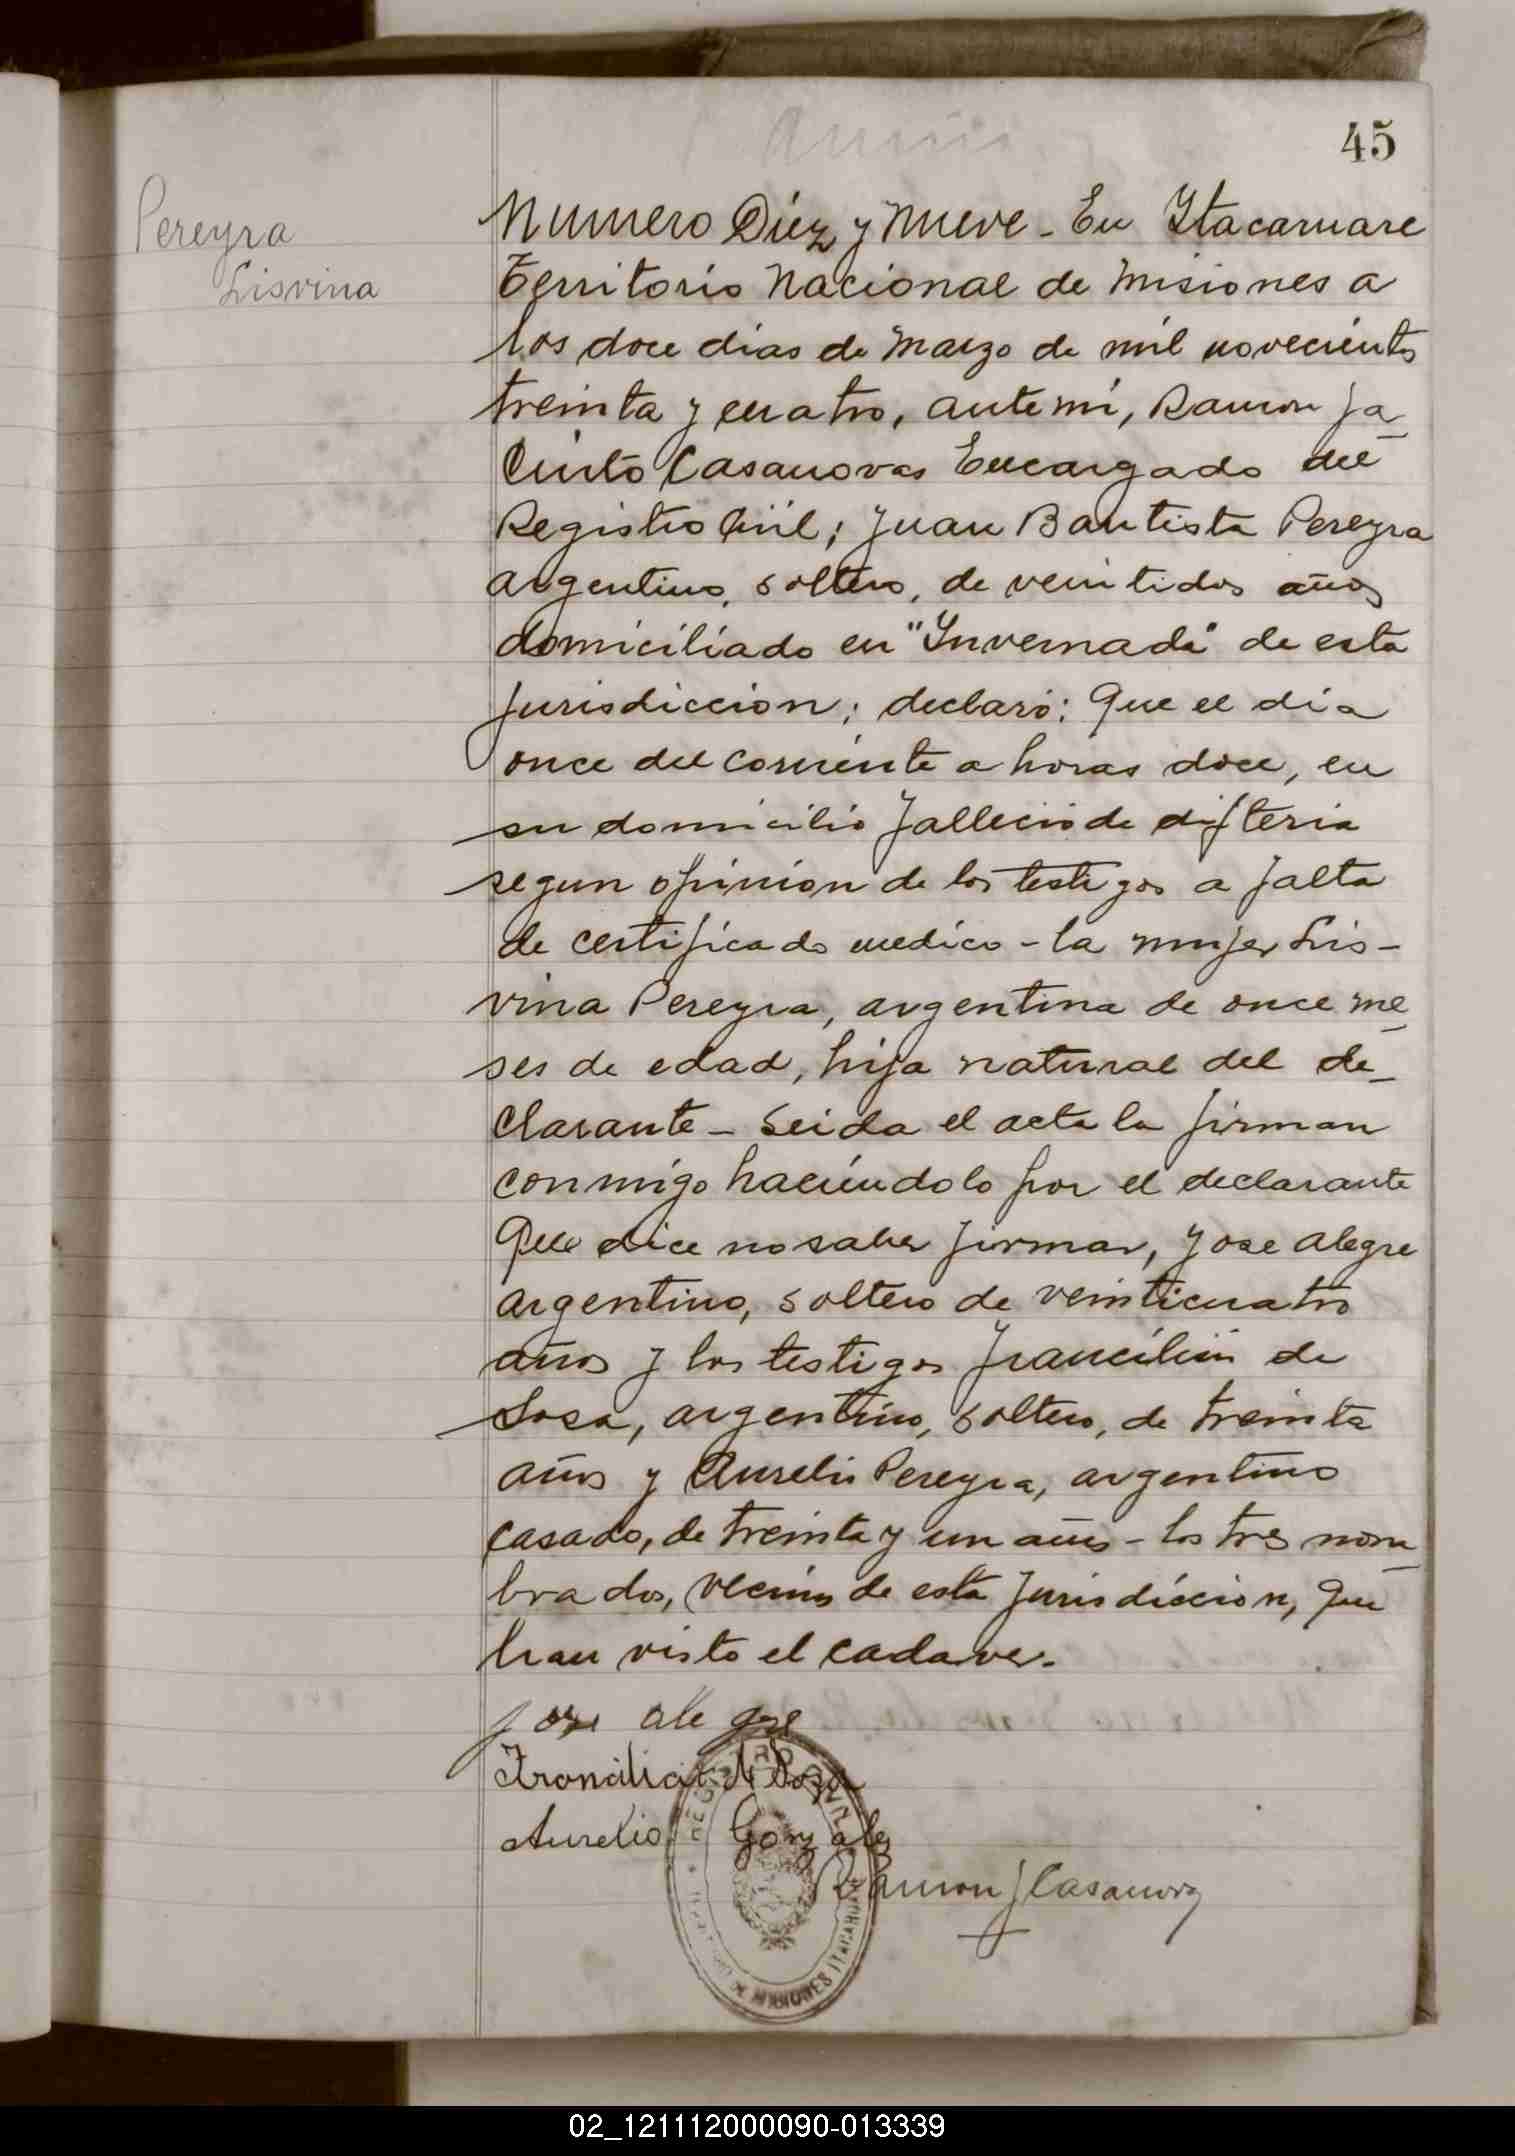 45
Pereyra
Lisvina
Numero Diez y Nueve - En Itacaruare
Territorio Nacional de Misiones a
los doce dias de Marzo de mil novecientos
treinta y cuatro, ante mi, Ramon Ja
cinto Casanovas Encargado del
Registro Civil; Juan Bautista Pereyra
argentino, soltero, de veintidos años
domiciliado en "Invernada" de esta
jurisdiccion; declaró: Que el dia
once del corriente a horas doce, en
su domicilio fallecio de difteria
segun opinion de los testigos a falta
de certificado medico - la mujer Lis-
vina Pereyra, argentina de once me
ses de edad, hija natural del de-
clarante - Leida el acta la firman
conmigo haciendolo por el declarante
que dice no saber firmar, Jose Alegre
argentino, soltero de veinticuatro
años y los testigos de
Sosa, argentino, soltero, de treinta
años y Aurelio Pereyra, argentino
casado, de treinta y un años - los tres nom
brados, vecinos de esta jurisdiccion, que
han visto el cadaver.
Jose alegre
Aurelio Gonzales
Ramon J Casanova
REGISTRO CIVIL
DE MISIONES ITACARUARE
02_121112000090-013339